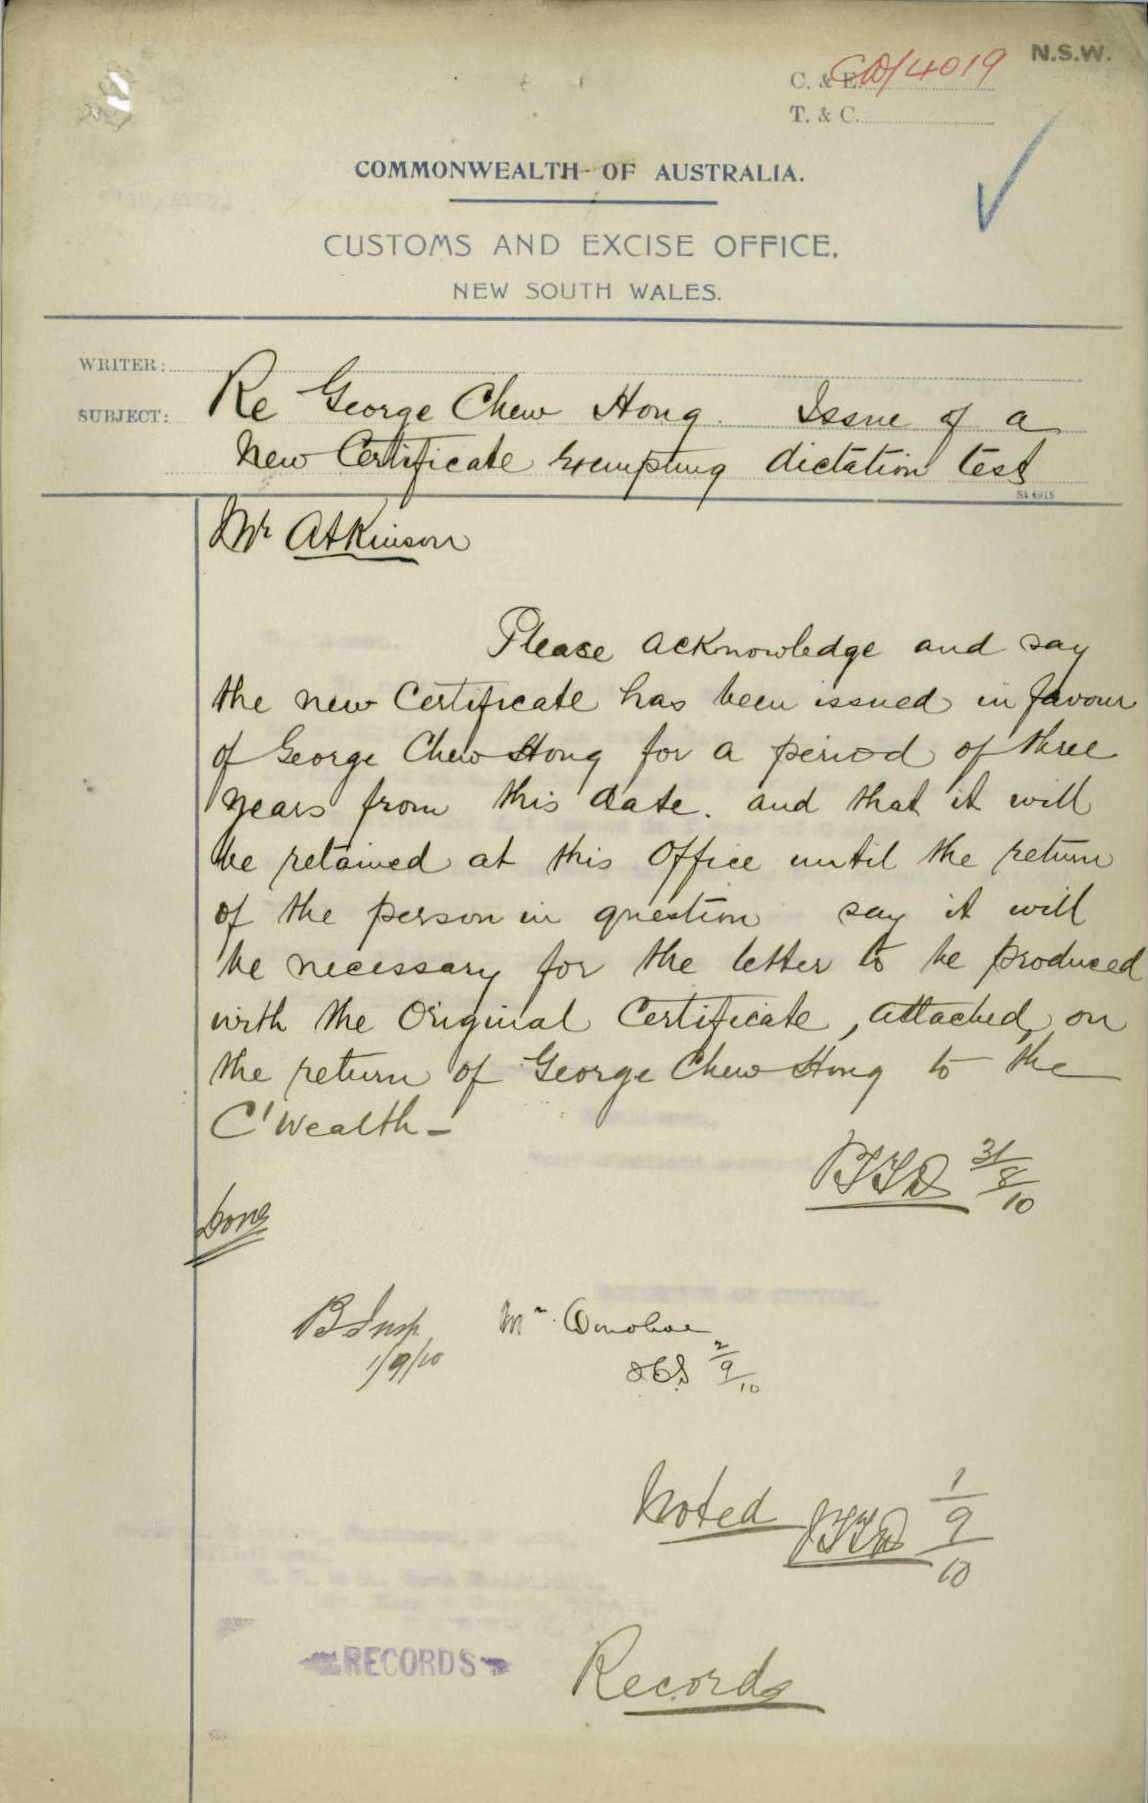 N.S.W.
C. & E. C10/4019
T. & C.
COMMONWEALTH OF AUSTRALIA.
CUSTOMS AND EXCISE OFFICE,
NEW SOUTH WALES.
WRITER:
SUBJECT: Re George Chew Hong. Issue of a
New Certificate exempting dictation test
Mr Atkinson
Please acknowledge and say
the new Certificate has been issued in favour
of George Chew Hong for a period of three
years from this date. and that it will
be retained at this Office until the return
of the person in question say it will
be necessary for the letter to be produced
with the Original Certificate, attached, on
the return of George Chew Hong to the
C'Wealth -
31/8/10
Done
B Insp Mr Donohoe
1/9/10 2/9/10
Noted 1/9/10
RECORDS
Records